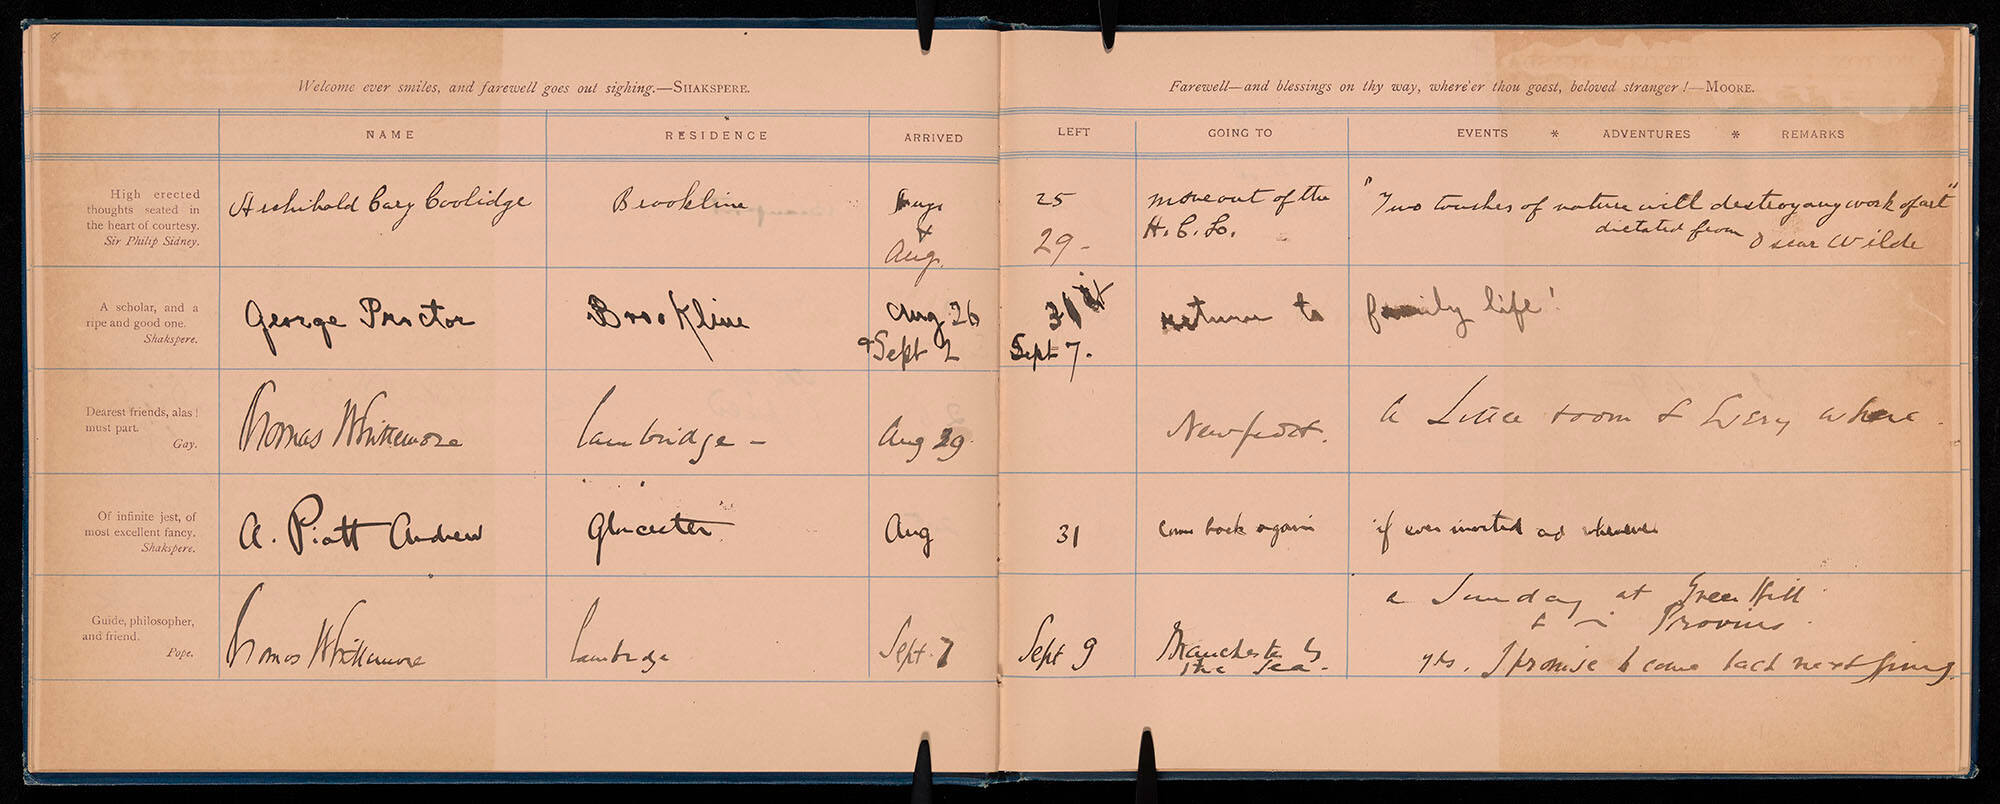 Welcome ever smiles, and farewell goes out sighing.—SHAKSPERE.
Farewell—and blessings on thy way, where'er thou goest, beloved stranger!—MOORE.
NAME RESIDENCE ARRIVED LEFT GOING TO EVENTS * ADVENTURES * REMARKS
High erected
thoughts seated in
the heart of courtesy.
Sir Philip Sidney.
Archibald Cary Coolidge
Brookline
Aug
&
Aug.
25
29-
move out of the
H. C. L.
"Two touches of nature will destroy any work of art"
dictated from Oscar Wilde
A scholar, and a
ripe and good one.
Shakspere.
George Proctor
Brookline
Aug 26
& Sept 2
31st
Sept 7.
return to
family life!
Dearest friends, alas!
must part.
Gay.
Thomas Whittemore
Cambridge –
Aug 29.
Newport.
a Little room & Every where.
Of infinite jest, of
most excellent fancy.
Shakspere.
A. Piatt Andrew
Gloucester
Aug
31
come back again
if ever invited and whenever
Guide, philosopher,
and friend.
Pope.
Thomas Whittemore
Cambridge
Sept. 7
Sept 9
Manchester by
the Sea.
a Sunday at Green Hill
& in Provins.
yes. I promise to come back next spring.